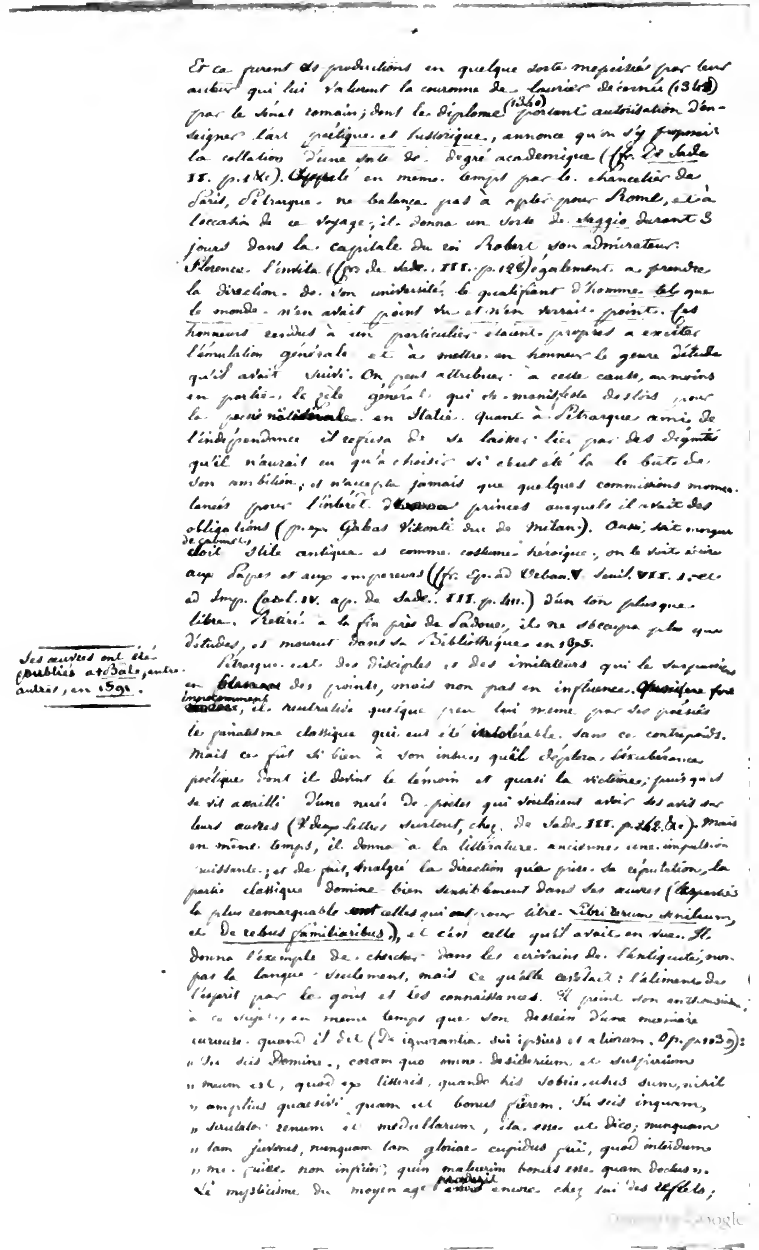 Et ce furent ces productions en quelque sorte meprisées par leur
auteur qui lui valurent la couronne de laurier décernée (1340)
par le Sénat romain; dont le diplome (1340) portant autorisation d'en-
seigner l'art poétique et historique, annonce qu'on s'y proposait
la collation d'une sorte de degré academique (Cfr. De Sade
II. p. 1 &c). Appelé en meme temps par le chancelier de
Paris, Pétrarque ne balança pas à opter pour Rome, et à
l'occasion de ce voyage, il donna un sorte de saggio durant 3
jours dans la capitale du roi Robert son admirateur.
Florence l'invita (Cfr. de Sade. III. p. 128) également a prendre
la direction de son université, le qualifiant d'homme tel que
le monde n'en avait point vu et n'en verrait point. Ces
honneurs rendus à un particulier étaient propres a exciter
l'émulation générale et à mettre en honneur le genre d'étude
qu'il avait suivi. On peut attribuer à cette cause, au moins
en partie, le zèle général qui se manifesta deslors pour
la poésie en Italie. Quant à Pétrarque ami de
l'indépendance il refusa de se laisser lier par des dignités
qu'il n'aurait eu qu'à choisir si c'eut été là le but de
son ambition; et n'accepta jamais que quelques commissions momen-
tanées pour l'intérêt de princes auxquels il avait des
obligations (p. ex. Galeas Visconti duc de Milan). Aussi, soit morgue
de cabinet,
soit stile antique et comme costume héroique, on le voit écrire
aux Papes et aux empereurs (Cfr. Ep. ad Urban. V. Senil. VII. 1. et
ad Imp. Carol. IV. ap. de Sade. III. p. 411.) d'un ton plus que
libre. Retiré a la fin près de Padoue, il ne s'occupa plus que
d'études, et mourut dans sa Bibliothèque en 1375.
Ses œuvres ont été
publiées à Bale, entre
autres, en 1591.
Pétrarque eut des disciples et des imitateurs qui le surpassèrent
en des points, mais non pas en influence.
il neutralisa quelque peu lui meme par ses poésies
le fanatisme classique qui eut été intolérable sans ce contrepoids.
Mais ce fut si bien à son insu qu'il déplora l'exubérance
poétique dont il devint le témoin et quasi la victime; puisqu'il
se vit assailli d'une nuée de poetes qui voulaient avoir ses avis sur
leurs œuvres (V. deux lettres surtout, chez de Sade. III. p. 242. &c). Mais
en même temps, il donna a la littérature ancienne une impulsion
puissante; et de fait, malgré la direction qu'a prise sa réputation, la
partie classique domine bien sensiblement dans ses œuvres (les parties
la plus remarquable sont celles qui ont pour titre Libri rerum senilium,
et De rebus familiaribus), et c'est celle qu'il avait en vue. Il
donna l'exemple de chercher dans les ecrivains de l'antiquité, non-
pas la langue seulement, mais ce qu'elle cachait: l'aliment de
l'esprit par le goût et les connaissances. Il peint son enthousiasme
à ce sujet, en meme temps que son dessein d'une manière
curieuse quand il dit (De ignorantia sui ipsius et aliorum. Op. p. 1039):
" Tu scis Domine, coram quo omne desiderium et suspirium
" meum est, quod ex litteris, quando his sobrie usus sum, nihil
" amplius quaesivi quam ut bonus fierem. Tu scis inquam,
" scrutator renum et medullarum, ita esse ut dico; nunquam
" tam juvenis, nunquam tam gloriae cupidus fui, quod interdum
" me fuisse non infitior, quin maluerim bonus esse quam doctus ".
Le mysticisme du moyen age produisit encore chez lui des reflets;